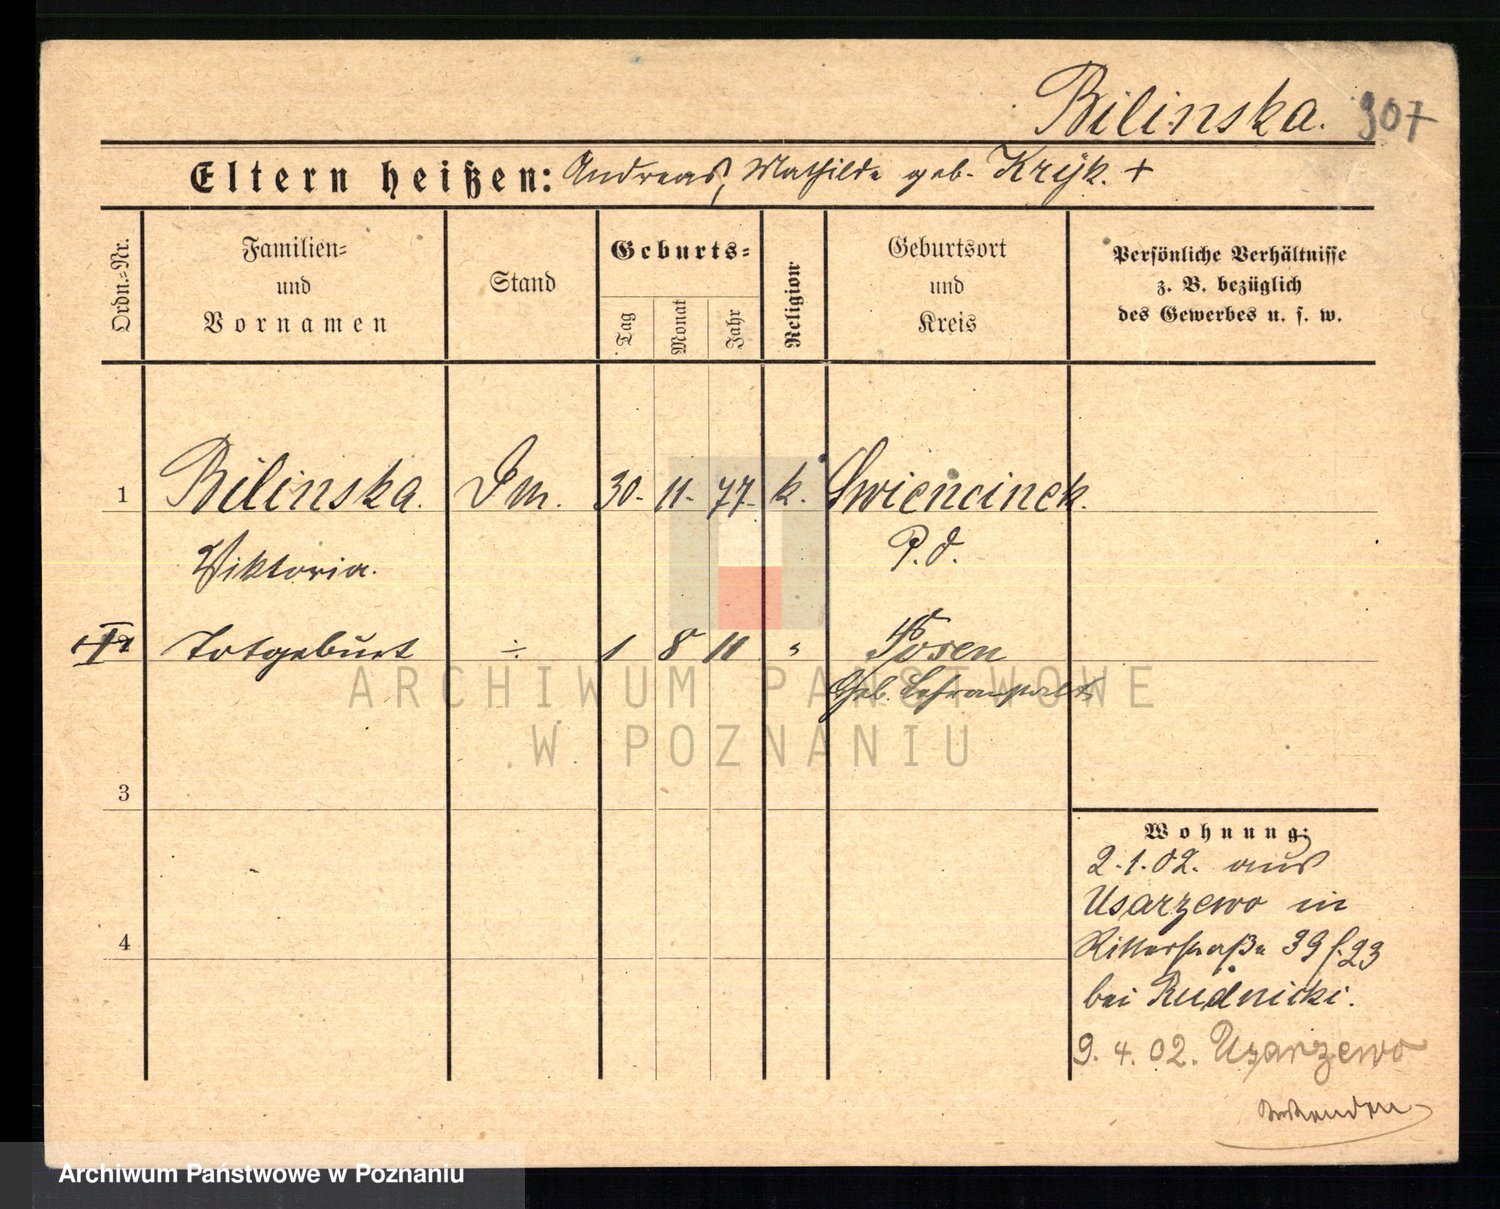 Bilinska. 907
Eltern heißen: Andreas, Mathilde geb. Kryk. +
Ordn.-Nr.
Familien-
und
Vornamen
Stand
Geburts-
Tag
Monat
Jahr
Religion
Geburtsort
und
Kreis
Persönliche Verhältnisse
z. B. bezüglich
des Gewerbes u. s. w.
1 Bilinska. 30. 11. 77. k. Swiencinek.
Viktoria. P. O.
Totgeburt ÷ 1 8 11 " Posen
Geb. Lehranstalt
3
4
Wohnung:
2.1.02. aus
Usarzewo in
Ritterstraße 39
bei Rudnicki.
9. 4. 02. Usarzewo
ARCHIWUM PAŃSTWOWE
W POZNANIU
Archiwum Państwowe w Poznaniu